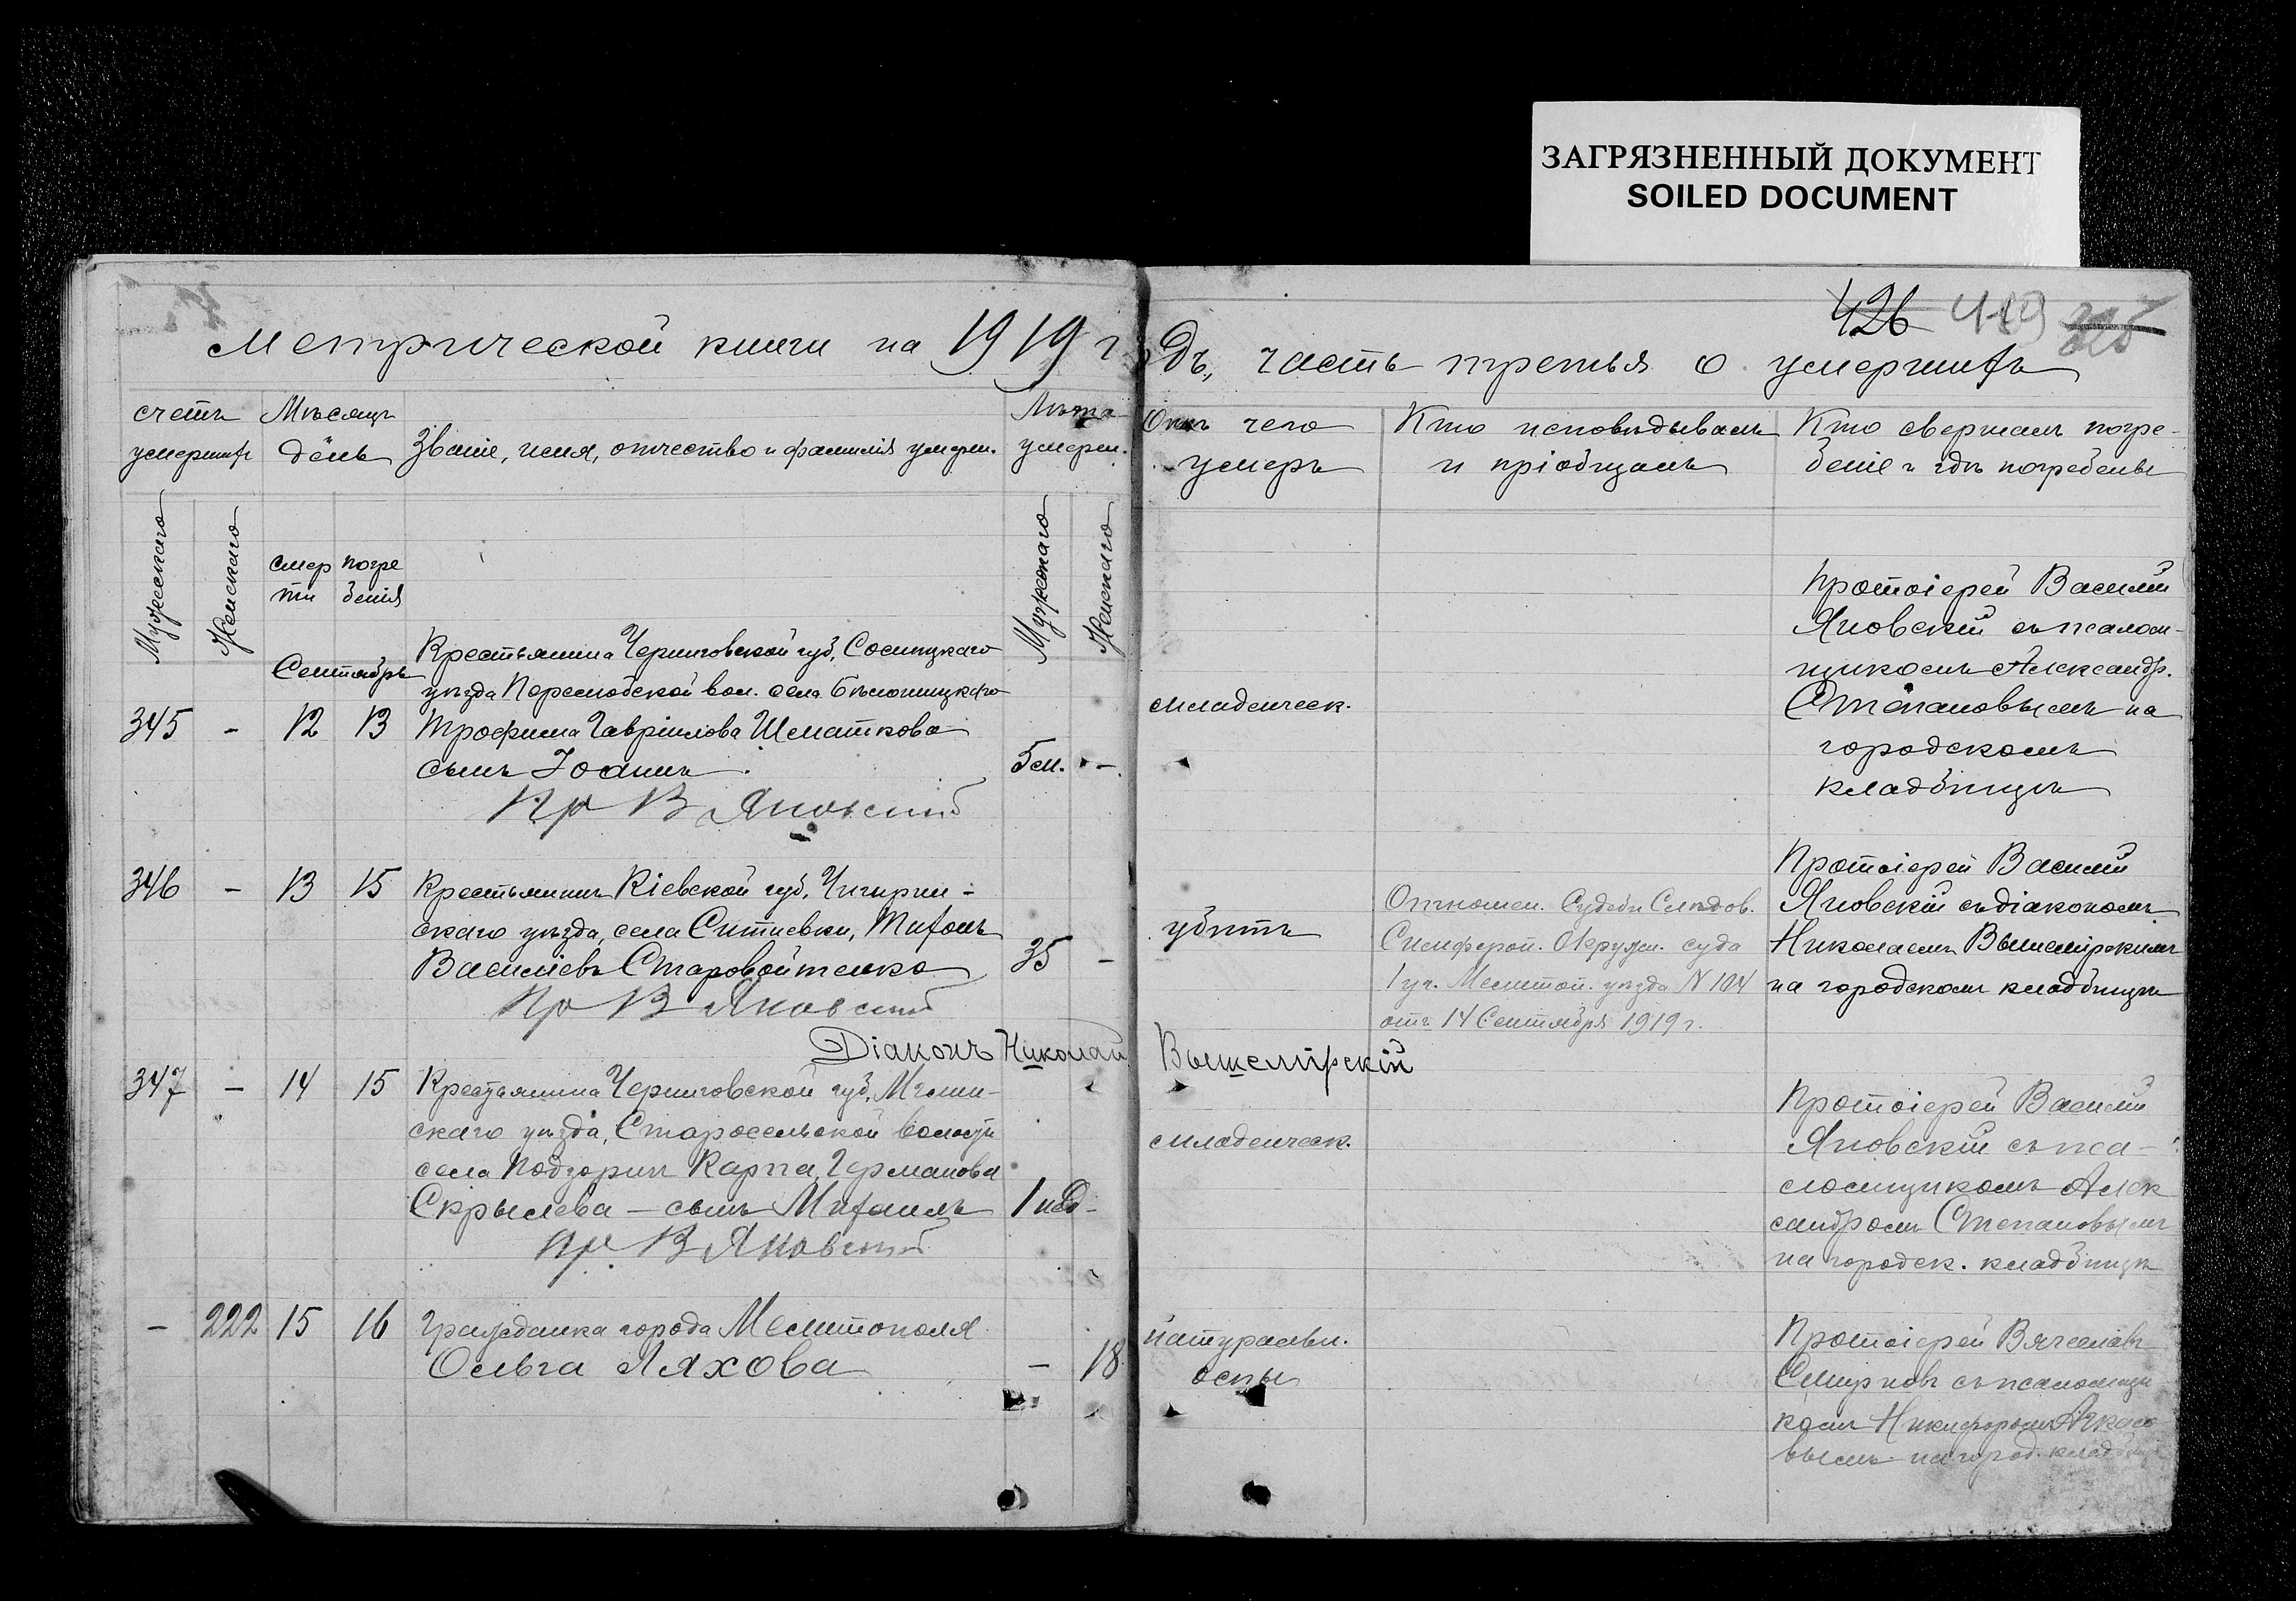 ЗАГРЯЗНЕННЫЙ ДОКУМЕНТ
SOILED DOCUMENT
426 419
Метрической книги на 1919 г
одъ, часть третья о умершихъ
счетъ умершихъ
Мѣсяцъ день
Званіе, имя, отчество и фамилія умерш.
Лѣта умерш.
Мужескаго
Женскаго
смер
ти
погре
бенія
Мужескаго
Женскаго
Отъ чего
умеръ
Кто исповѣдывалъ
и пріобщалъ
Кто свершалъ погре-
беніе и гдѣ погребены
Сентябрь
345 - 12 13
Крестьянина Черниговской губ., Сосницкаго
уѣзда Перелюбской вол. села
Трофима Гавріилова Шматкова
сынъ Іоаннъ.
5 м. -
Пр В Яновский
младенческ.
Протоіерей Василій
Яновскій съ псалом-
щикомъ Александр.
Степановымъ на
городскомъ
кладбищѣ
346 - 13 15
Крестьянинъ Кіевской губ., Чигирин-
скаго уѣзда, села Ситневки, Тихонъ
Васильевъ Старовойтенко
35 -
Пр В Яновский
убитъ
Отношен. Судебн Слѣдов.
Симфероп. Окружн. суда
1 уч. Мелитоп. уѣзда N 104
отъ 14 Сентября 1919 г.
Протоіерей Василій
Яновскій съ діакономъ
Николаемъ Вышемірскимъ
на городскомъ кладбищѣ
Діаконъ Николай Вышемірскій
347 - 14 15
Крестьянина Черниговской губ., Мглин-
скаго уѣзда, Старосельской волости
села Карпа Германова
Скрылева - сынъ Михаилъ
1 нед -
Пр. В Яновский
младенческ.
Протоіерей Василій
Яновскій съ пса-
ломщикомъ Алек
сандромъ Степановымъ
на городск. кладбищѣ
- 222 15 16
Гражданка города Мелитополя
Ольга Ляхова
- 18
натуральн.
оспы
Протоіерей Вячеславъ
Смирновъ съ псаломщи
комъ Никифоромъ
вымъ на город. кладбищѣ